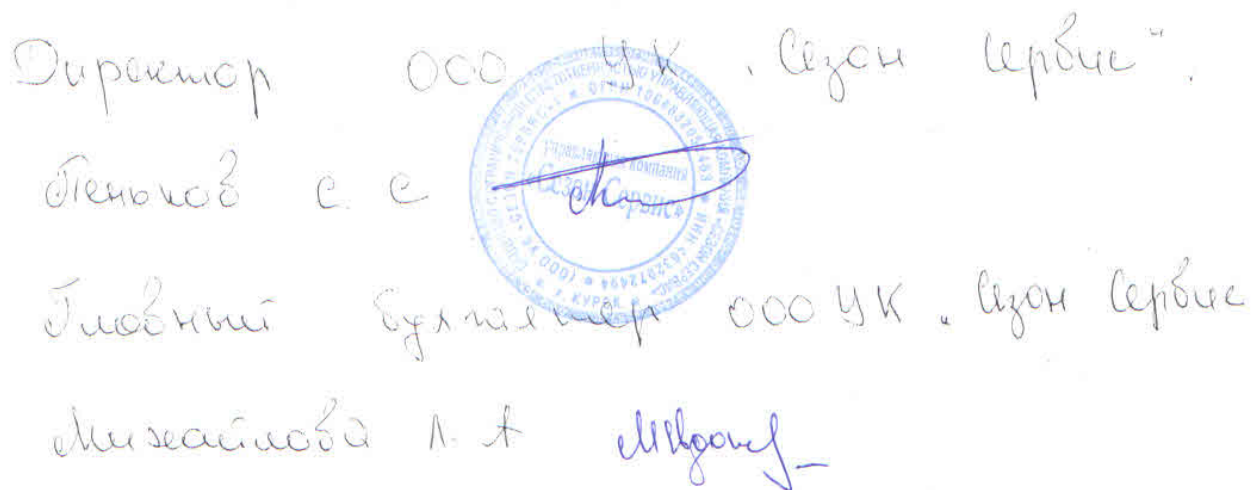 Директор ООО УК „Сезон Сервис“.
Пеньков С. С
управляющая компания
«Сезон Сервис»
г. КУРСК
Главный бухгалтер ООО УК „Сезон Сервис
Михайлова Л. А